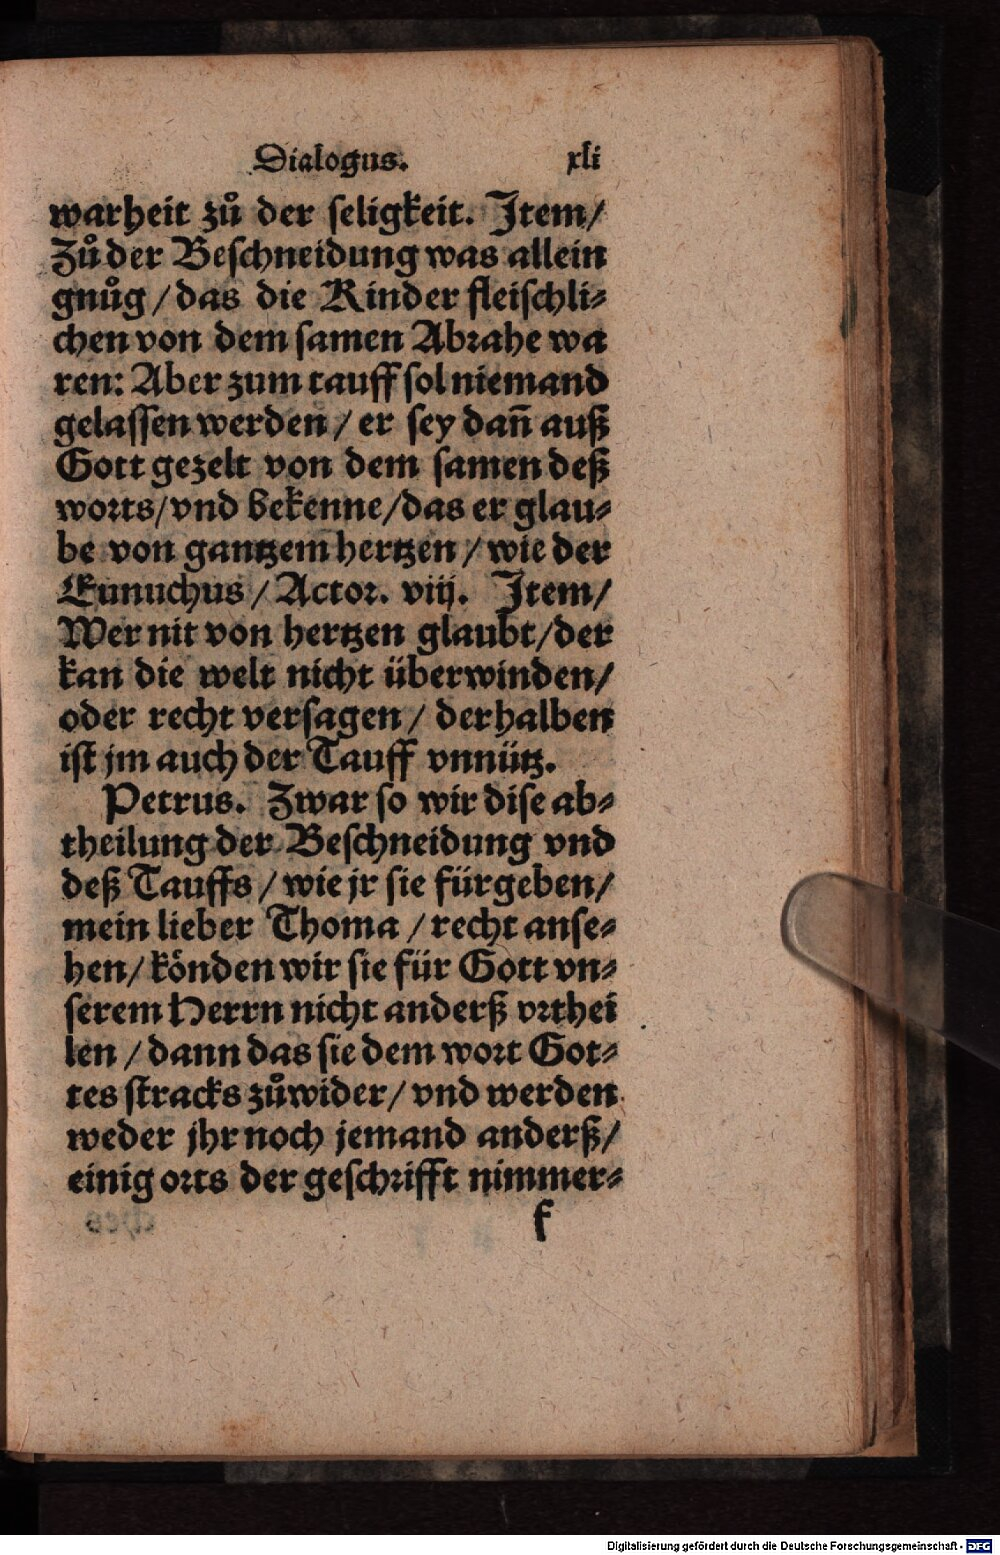 Dialogus. xli
warheit zů der seligkeit. Item/
Zů der Beschneidung was allein
gnůg / das die Kinder fleischli⸗
chen von dem samen Abrahe wa
ren: Aber zum tauff sol niemand
gelassen werden / er sey dañ auß
Gott gezelt von dem samen deß
worts / vnd bekenne / das er glau⸗
be von gantzem hertzen / wie der
Eunuchus / Actor. viij. Item/
Wer nit von hertzen glaubt / der
kan die welt nicht überwinden/
oder recht versagen / derhalben
ist jm auch der Tauff vnnütz.
Petrus. Zwar so wir dise ab⸗
theilung der Beschneidung vnd
deß Tauffs / wie jr sie fürgeben/
mein lieber Thoma / recht anse⸗
hen / könden wir sie für Gott vn⸗
serem Herrn nicht anderß vrthei
len / dann das sie dem wort Got⸗
tes stracks zůwider / vnd werden
weder jhr noch jemand anderß/
einig orts der geschrifft nimmer⸗
f
Digitalisierung gefördert durch die Deutsche Forschungsgemeinschaft - DFG